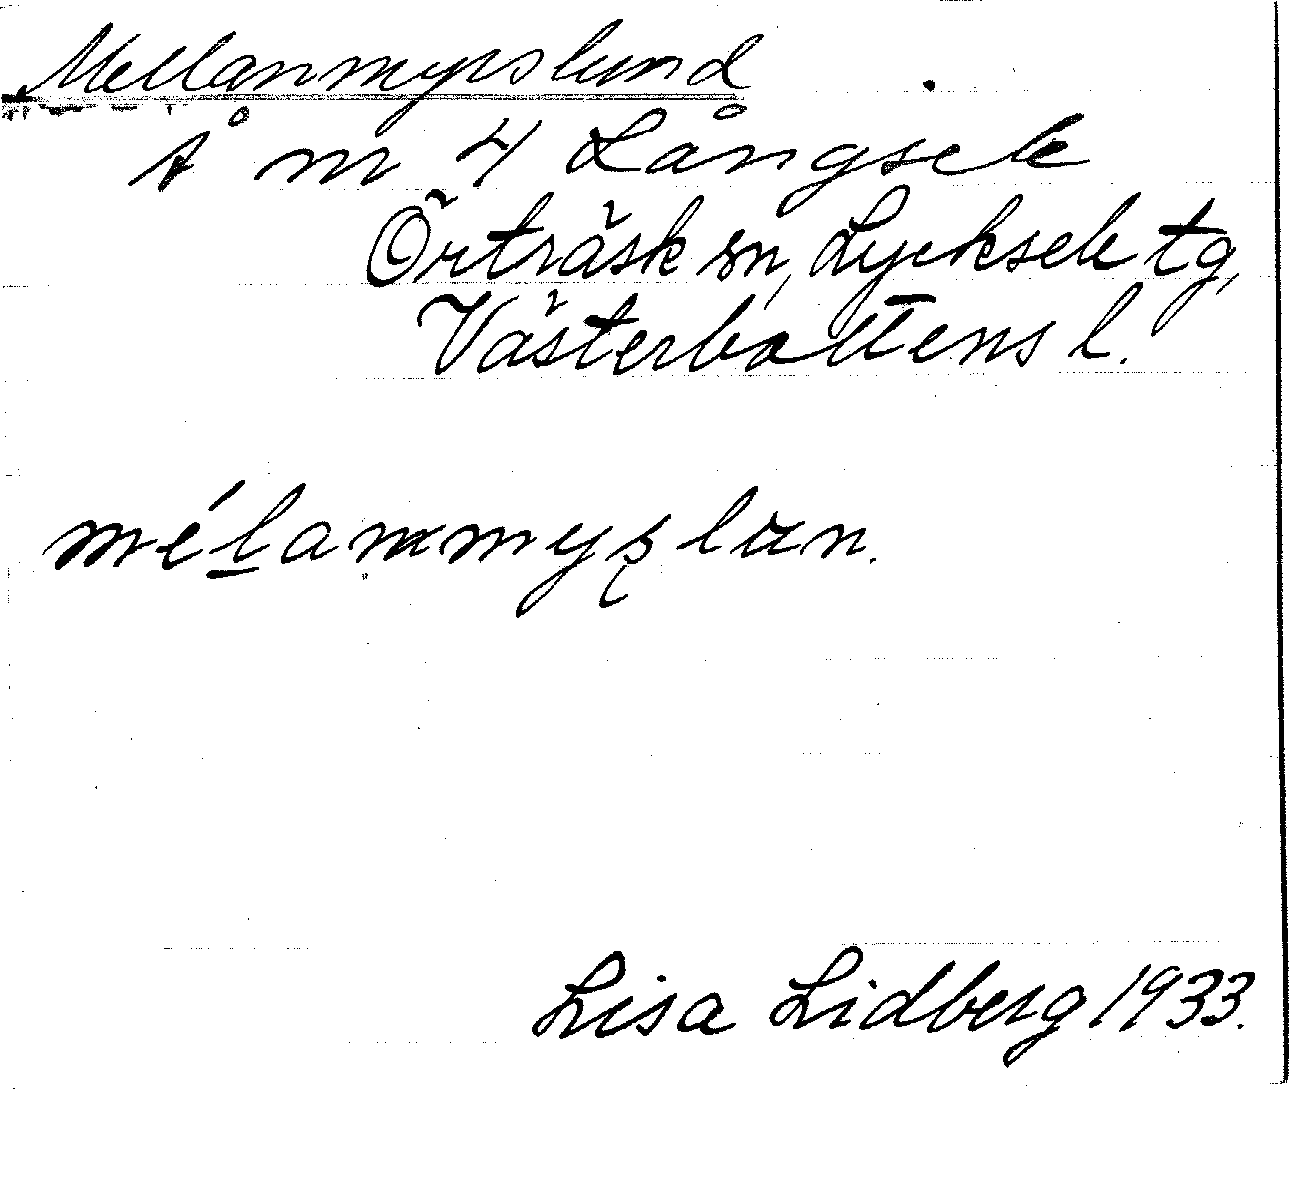 Mellanmyrslund
Å m 4 Långsele
Örträsk sn, Lycksele tg,
Västerbottens l.
mélammyʂlun.
Lisa Lidberg 1933.